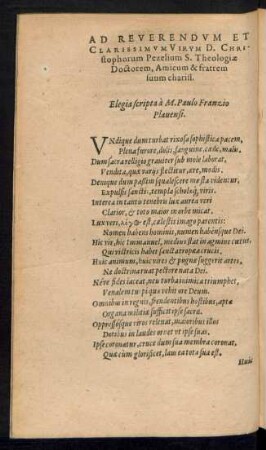 AD REVERENDVM ET
CLARISSIMVM VIRVM D. CHRI
stophorum Pezelium S. Theologiæ
Doctorem, Amicum & fratrem
suum chariss.
Elegia scripta à M. Paulo Franzio
Plauensi.
VNdique dum turbat rixosa sophistica pacem,
Plena furore, dolis, sanguine, cæde, malis,
Dum sacra relligio grauiter sub mole laborat,
Vendita, quà varijs flectitur, arte, modis.
Denique dum passim squalescere mœsta videntur,
Expulsis sanctis, templa scholæq, viris.
Interea in tantis tenebris lux aurea veri
Clarior, & toto maior in orbe micat.
Lux veri, λόγος est, cælestis imago parentis:
Numen habens hominis, numen habensque Dei.
Hic vir, hic tutus amnes, medius stat in agmine
Qui victricis habet sancta tropæa crucis,
Huic animum, huic vires & pugnæ suggerit artes,
Ne doctrina ruat pectore nata Dei.
Neve fides iaceat, neu turba inimica triumphet,
Venalem tu piqua vehit arte Deum.
Omnibus in regnis, frendentibus hostibus, apta
Organa militiæ sufficit ipse sacræ.
Oppressosque viros releuat, maioribus illos
Dotibus in laudes ornat vt ipse suas.
Ipse coronatur, cruce dum sua membra coronat,
Quæ cum glorificet, laus ea tota sua est.
Huic